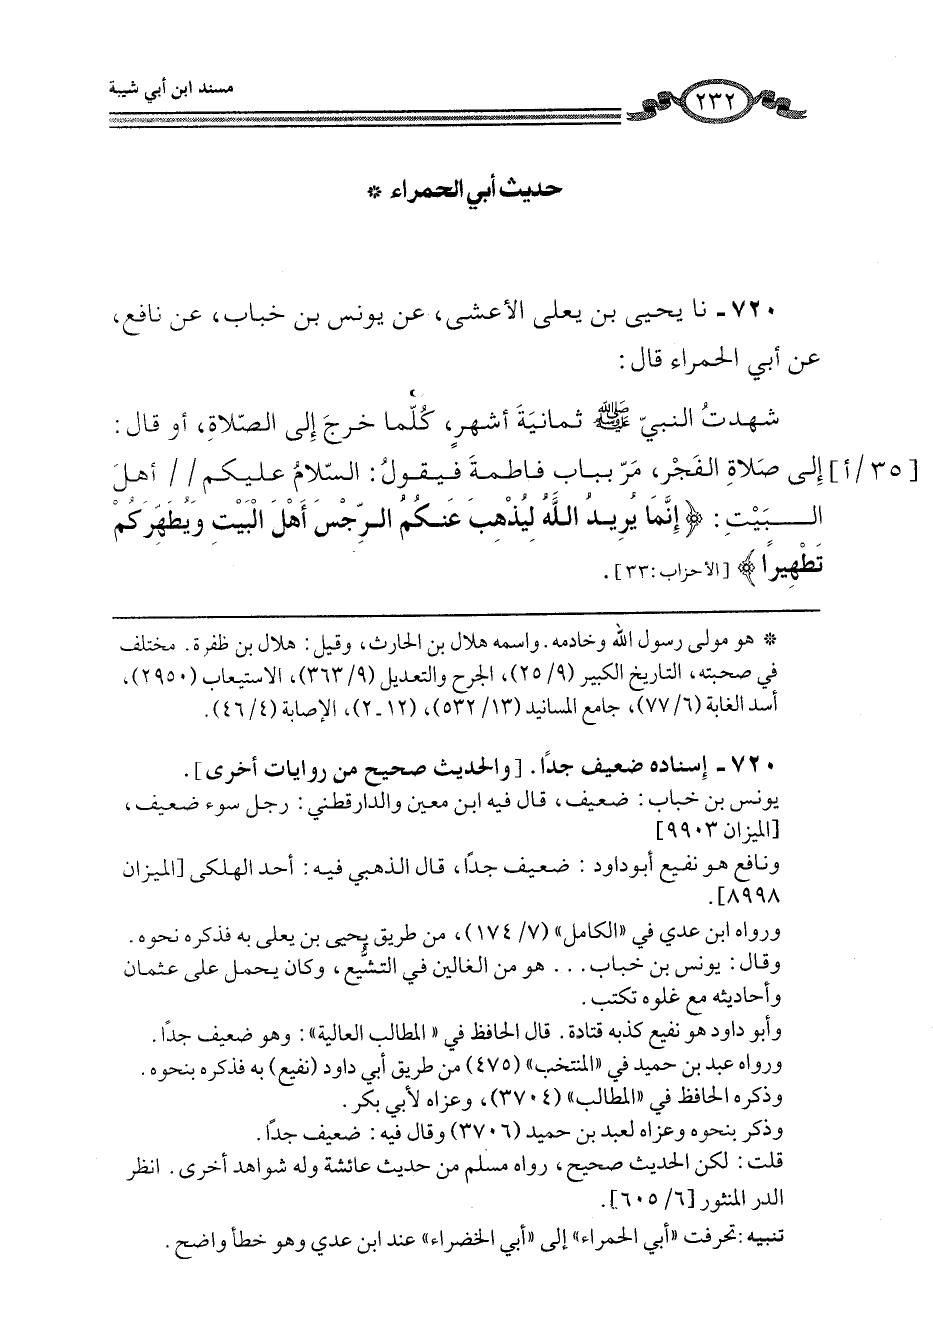 مسند ابن أبي شيبة
٢٣٢
حديث أبي الحمراء *
٧٢٠ - نا يحيى بن يعلى الأعشى، عن يونس بن خباب، عن نافع،
عن أبي الحمراء قال:
شهدتُ النبيّ ﷺ ثمانيةَ أشهرٍ، كُلّما خرجَ إلى الصّلاةِ، أو قال:
[٣٥/أ] إلى صَلاةِ الفَجْرِ، مَرّ ببابِ فاطمةَ فيقولُ: السّلامُ عليكم // أهلَ
البَيْتِ: ﴿إِنَّمَا يُرِيدُ اللَّهُ لِيُذْهِبَ عَنكُمُ الرِّجْسَ أَهْلَ الْبَيْتِ وَيُطَهِّرَكُمْ
تَطْهِيرًا﴾ [الأحزاب: ٣٣].
* هو مولى رسول الله وخادمه. واسمه هلال بن الحارث، وقيل: هلال بن ظفرة. مختلف
في صحبته، التاريخ الكبير (٢٥/٩)، الجرح والتعديل (٣٦٣/٩)، الاستيعاب (٢٩٥٠)،
أسد الغابة (٧٧/٦)، جامع المسانيد (٥٣٢/١٣)، (١٢-٢)، الإصابة (٤٦/٤).
٧٢٠ - إسناده ضعيف جدًا. [والحديث صحيح من روايات أخرى].
يونس بن خباب: ضعيف، قال فيه ابن معين والدارقطني: رجل سوء ضعيف،
[الميزان ٩٩٠٣]
ونافع هو نفيع أبو داود: ضعيف جدًا، قال الذهبي فيه: أحد الهلكى [الميزان
٨٩٩٨].
ورواه ابن عدي في «الكامل» (١٧٤/٧)، من طريق يحيى بن يعلى به فذكره نحوه.
وقال: يونس بن خباب... هو من الغالين في التشيُّع، وكان يحمل على عثمان
وأحاديثه مع غلوه تكتب.
وأبو داود هو نفيع كذبه قتادة. قال الحافظ في «المطالب العالية»: وهو ضعيف جدًا.
ورواه عبد بن حميد في «المنتخب» (٤٧٥) من طريق أبي داود (نفيع) به فذكره بنحوه.
وذكره الحافظ في «المطالب» (٣٧٠٤)، وعزاه لأبي بكر.
وذكر بنحوه وعزاه لعبد بن حميد (٣٧٠٦) وقال فيه: ضعيف جدًا.
قلت: لكن الحديث صحيح، رواه مسلم من حديث عائشة وله شواهد أخرى. انظر
الدر المنثور [٦٠٥/٦].
تنبيه: تحرفت «أبي الحمراء» إلى «أبي الخضراء» عند ابن عدي وهو خطأ واضح.